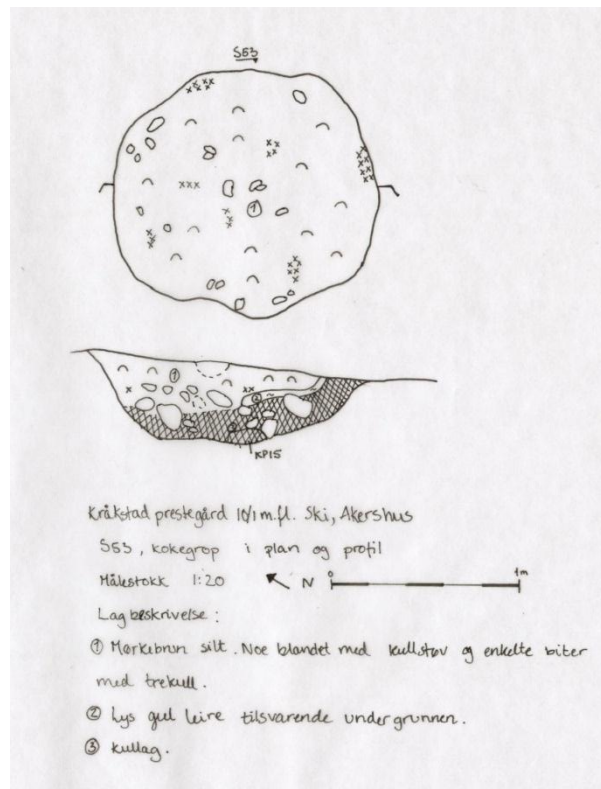 S53
1
1
2
3
KP15
Kråkstad prestegård 10/1 m.fl. Ski, Akershus
S53, kokegrop i plan og profil
Målestokk 1:20 N 0 1m
Lagbeskrivelse:
① Mørkebrun silt. Noe blandet med kullstøv og enkelte biter
med trekull.
② Lys gul leire tilsvarende undergrunnen.
③ Kullag.